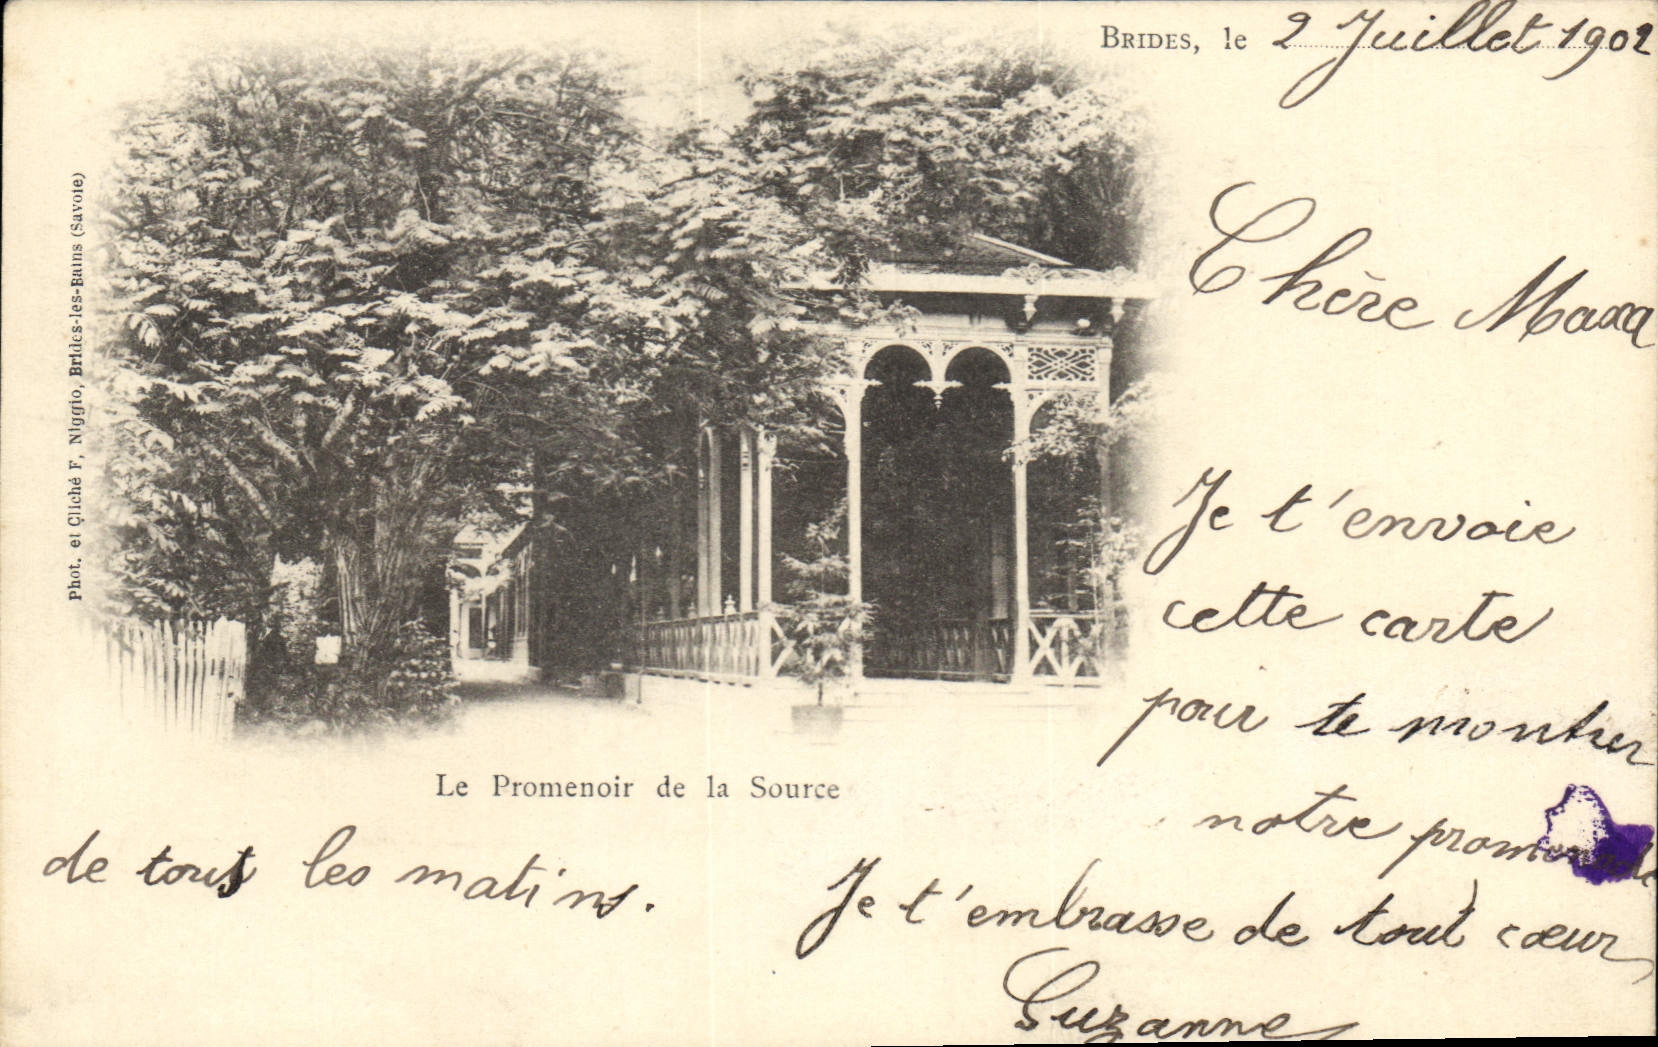 BRIDES, le 2 Juillet 1902
Chère Maxa
Je t'envoie
cette carte
pour te montrer
notre promenade
de tous les matins.
Je t'embrasse de tout cœur
Suzanne
Le Promenoir de la Source
Phot. et Cliché F. Niggio, Brides-les-Bains (Savoie)